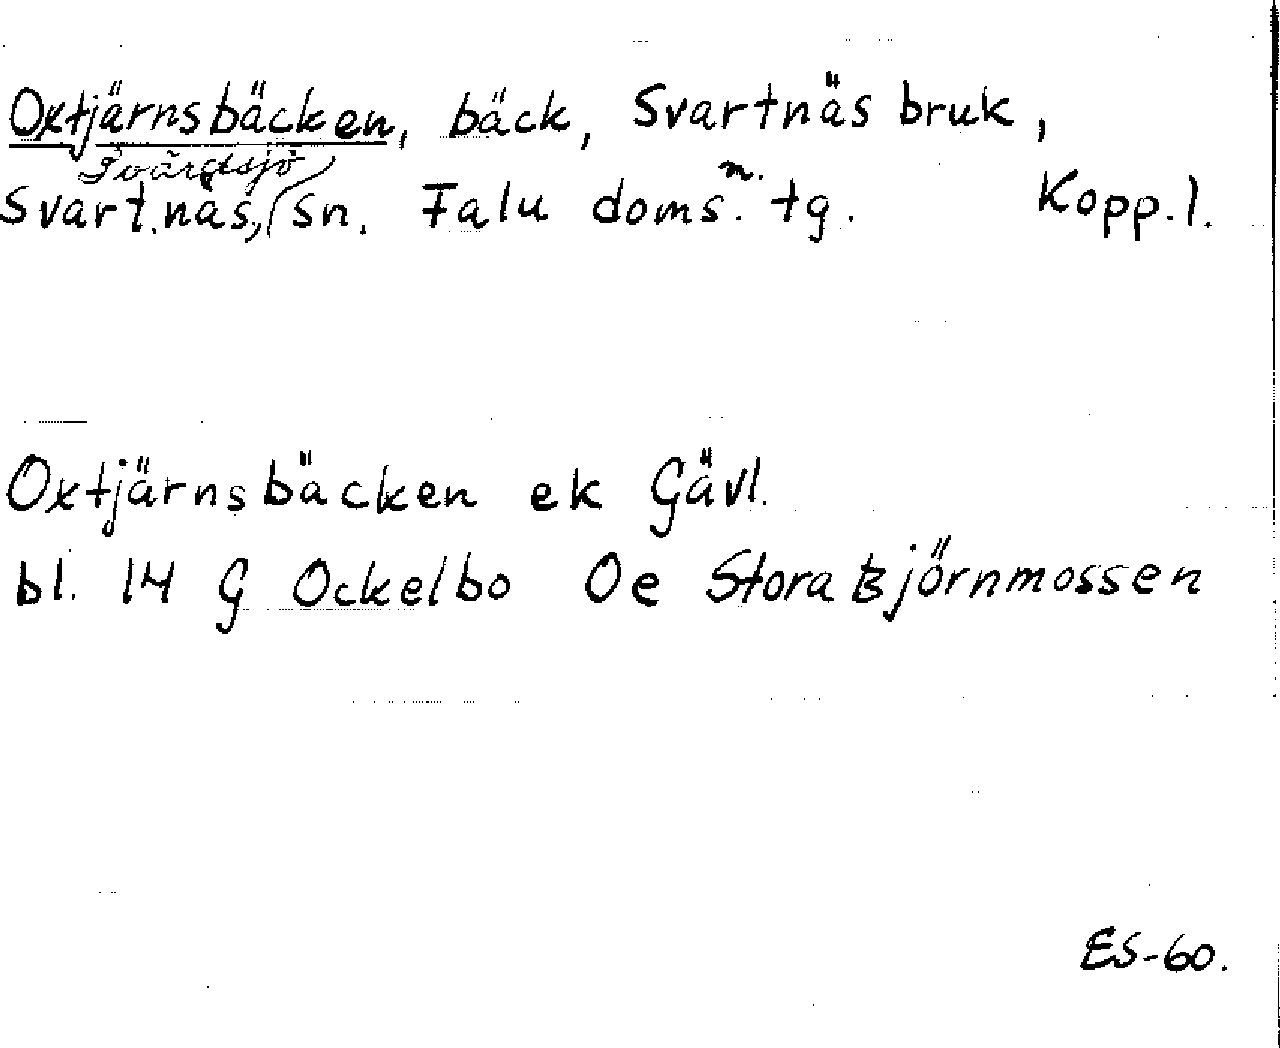 Oxtjärnsbäcken, bäck, Svartnäs bruk,
Svärdsjö
Svartnäs, sn. Falu doms. n. tg. Kopp.l.
Oxtjärnsbäcken ek Gävl.
bl. 14 G Ockelbo Oe Stora Björnmossen
ES-60.